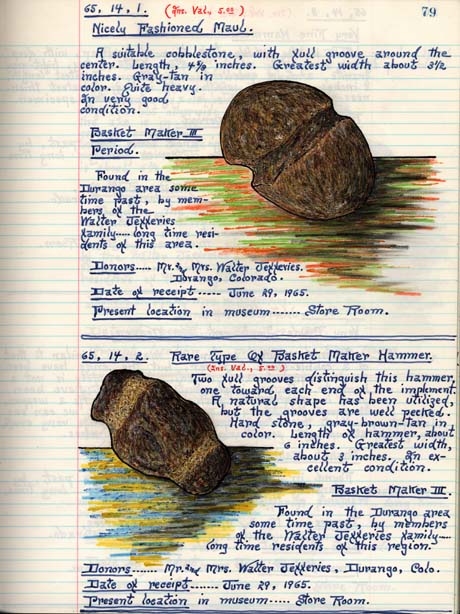 79
65, 14, 1. (Ins. Val., 5.00)
Nicely Fashioned Maul.
A suitable cobblestone, with full groove around the
center. Length, inches. Greatest width about 3 1/2
inches. Gray-tan in
color. Quite heavy.
In very good
condition.
Basket Maker III
Period.
Found in the
Durango area some
time past, by mem-
bers of the
Walter Jefferies
family..... long time resi-
dents of this area.
Donors..... Mr. & Mrs. Walter Jefferies.
Durango, Colorado.
Date of receipt...... June 29, 1965.
Present location in museum....... Store Room.
65, 14, 2. Rare Type Of Basket Maker Hammer.
(Ins. Val., 5.00)
Two full grooves distinguish this hammer,
one toward each end of the implement.
A natural shape has been utilized,
but the grooves are well pecked.
Hard stone, gray-brown-tan in
color. Length of hammer, about
6 inches. Greatest width,
about 3 inches. In ex-
cellent condition.
Basket Maker III.
Found in the Durango area
some time past, by members
of the Walter Jefferies family.....
long time residents of this region.
Donors....... Mr. and Mrs. Walter Jefferies, Durango, Colo.
Date of receipt...... June 29, 1965.
Present location in museum..... Store Room.